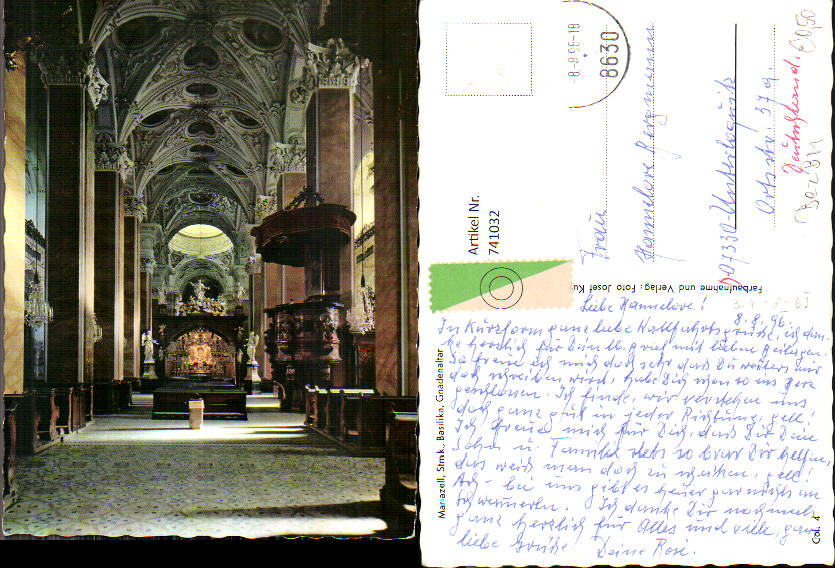 Mariazell, Stmk., Basilika, Gnadenaltar
Farbaufnahme und Verlag: Foto Josef Ku
Col. 4
Artikel Nr.
741032
-8.-8.96-18
8630
Frau
Hannelore Bergmann
D-07330-Unterloquitz
Ortsstr. 37 a.
Deutschland.
8.8.96.
Liebe Hannelore!
In Kurzform ganz liebe Wallfahrtsgrüße, ich dan-
ke herzlich für Deinen Brief mit lieben Beilagen.
So freue ich mich doch sehr dass Du weiters mir
doch schreiben wirst, habe Dich schon so ins Herz
geschlossen. Ich finde, wir verstehen uns
doch ganz gut in jeder Richtung, gell!
Ich freue mich für Dich, dass Dir Deine
Söhne u. Familie stets so brav Dir helfen,
das weiß man doch zu schätzen, gell!
Ach - bei uns gibt es heuer gar nichts an
Schwammerln. Ich danke Dir nochmals
ganz herzlich für Alles und viele, ganz
liebe Grüße! Deine Rosi.